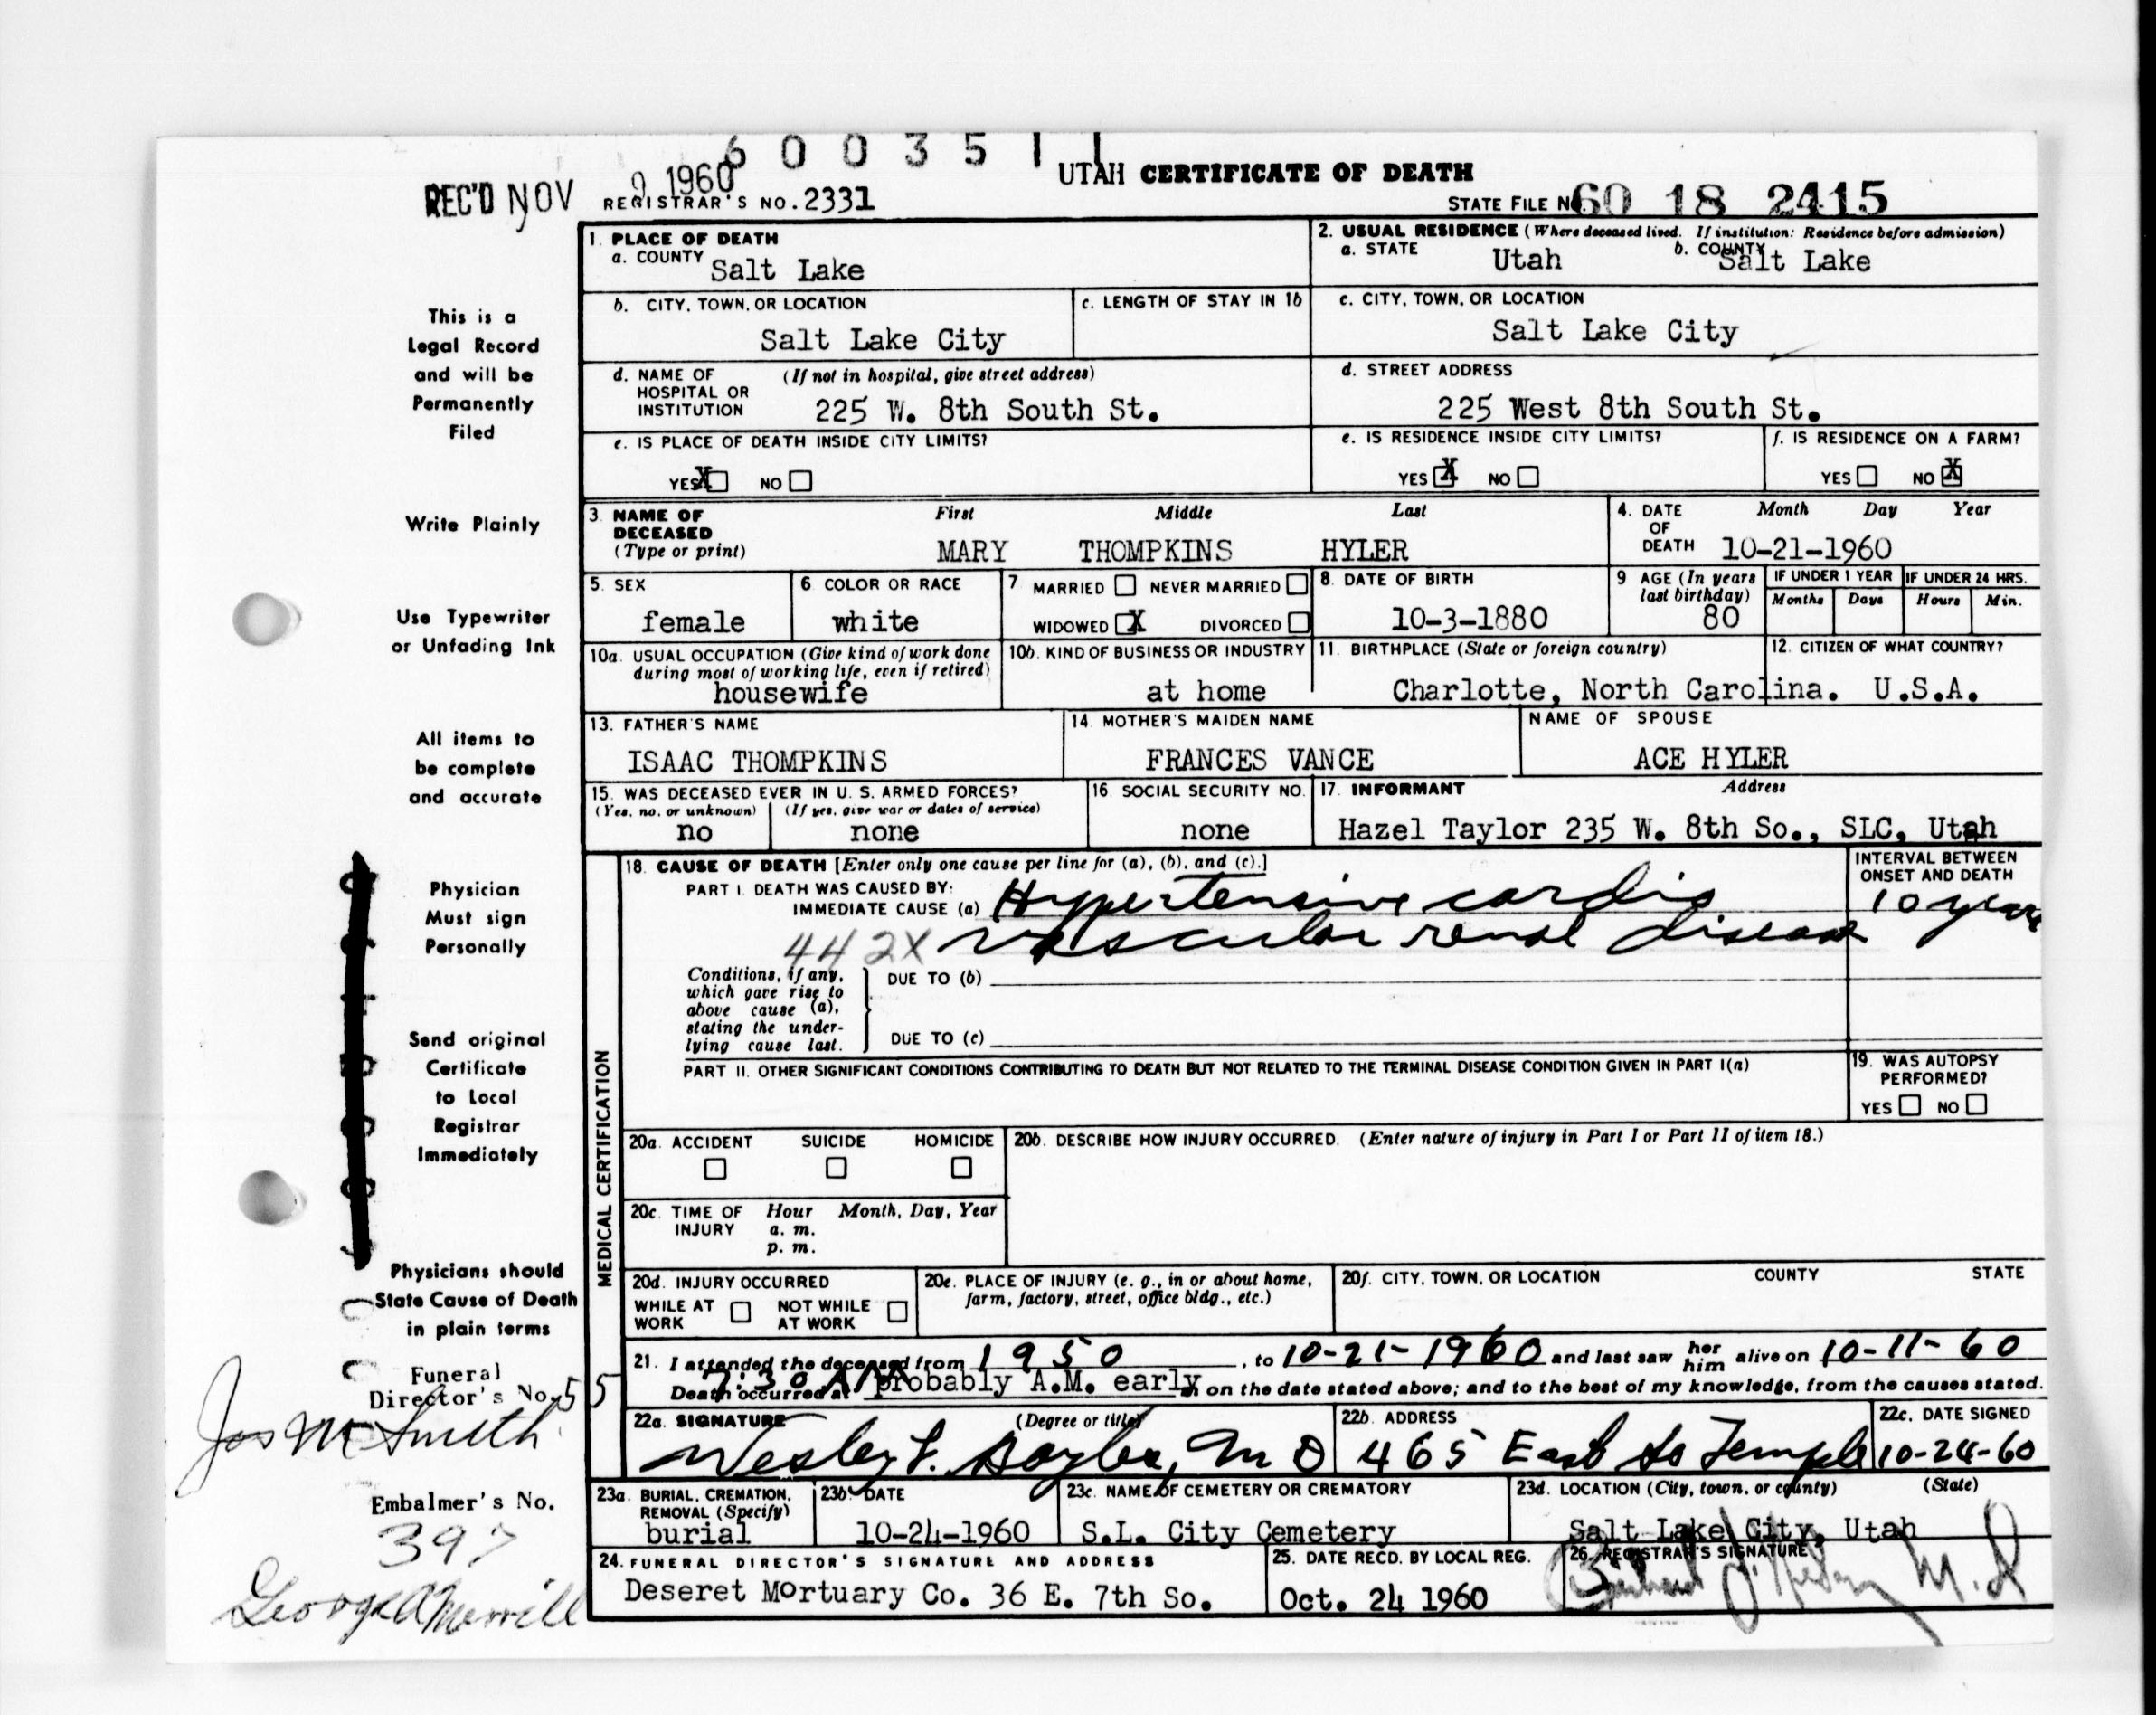 6 0 0 3 5 1 1
REC'D NOV 9 1960
UTAH CERTIFICATE OF DEATH
REGISTRAR'S NO. 2331
STATE FILE NO. 60 18 2415
1. PLACE OF DEATH
a. COUNTY Salt Lake
2. USUAL RESIDENCE (Where deceased lived. If institution: Residence before admission)
a. STATE Utah b. COUNTY Salt Lake
b. CITY, TOWN, OR LOCATION Salt Lake City
c. LENGTH OF STAY IN 1b
c. CITY, TOWN, OR LOCATION Salt Lake City
d. NAME OF HOSPITAL OR INSTITUTION (If not in hospital, give street address) 225 W. 8th South St.
d. STREET ADDRESS 225 West 8th South St.
e. IS PLACE OF DEATH INSIDE CITY LIMITS?
YES X NO
e. IS RESIDENCE INSIDE CITY LIMITS?
YES X NO
f. IS RESIDENCE ON A FARM?
YES NO X
3. NAME OF DECEASED (Type or print)
First Middle Last
MARY THOMPKINS HYLER
4. DATE OF DEATH Month Day Year
10-21-1960
5. SEX female
6. COLOR OR RACE white
7 MARRIED NEVER MARRIED
WIDOWED X DIVORCED
8. DATE OF BIRTH 10-3-1880
9 AGE (In years last birthday) 80
IF UNDER 1 YEAR Months Days
IF UNDER 24 HRS. Hours Min.
10a. USUAL OCCUPATION (Give kind of work done during most of working life, even if retired) housewife
10b. KIND OF BUSINESS OR INDUSTRY at home
11. BIRTHPLACE (State or foreign country) Charlotte, North Carolina.
12. CITIZEN OF WHAT COUNTRY? U.S.A.
13. FATHER'S NAME ISAAC THOMPKINS
14. MOTHER'S MAIDEN NAME FRANCES VANCE
NAME OF SPOUSE ACE HYLER
15. WAS DECEASED EVER IN U. S. ARMED FORCES?
(Yes, no, or unknown) (If yes, give war or dates of service)
no none
16. SOCIAL SECURITY NO. none
17. INFORMANT Address
Hazel Taylor 235 W. 8th So., SLC, Utah
MEDICAL CERTIFICATION
18. CAUSE OF DEATH [Enter only one cause per line for (a), (b), and (c).]
INTERVAL BETWEEN ONSET AND DEATH
PART I. DEATH WAS CAUSED BY:
IMMEDIATE CAUSE (a) Hypertensive cardio
10 years
442X vascular renal disease
Conditions, if any, which gave rise to above cause (a), stating the underlying cause last.
DUE TO (b)
DUE TO (c)
PART II. OTHER SIGNIFICANT CONDITIONS CONTRIBUTING TO DEATH BUT NOT RELATED TO THE TERMINAL DISEASE CONDITION GIVEN IN PART I(a)
19. WAS AUTOPSY PERFORMED?
YES NO
20a. ACCIDENT SUICIDE HOMICIDE
20b. DESCRIBE HOW INJURY OCCURRED. (Enter nature of injury in Part I or Part II of item 18.)
20c. TIME OF INJURY Hour Month, Day, Year
a. m.
p. m.
20d. INJURY OCCURRED
WHILE AT WORK NOT WHILE AT WORK
20e. PLACE OF INJURY (e. g., in or about home, farm, factory, street, office bldg., etc.)
20f. CITY, TOWN, OR LOCATION COUNTY STATE
21. I attended the deceased from 1950, to 10-21-1960 and last saw her him alive on 10-11-60
Death occurred at 7:30 AM probably A.M. early, on the date stated above; and to the best of my knowledge, from the causes stated.
22a. SIGNATURE (Degree or title)
Wesley F. M D
22b. ADDRESS 465 East So Temple
22c. DATE SIGNED 10-24-60
23a. BURIAL, CREMATION, REMOVAL (Specify) burial
23b. DATE 10-24-1960
23c. NAME OF CEMETERY OR CREMATORY S.L. City Cemetery
23d. LOCATION (City, town, or county) (State)
Salt Lake City, Utah
24. FUNERAL DIRECTOR'S SIGNATURE AND ADDRESS
Deseret Mortuary Co. 36 E. 7th So.
25. DATE RECD. BY LOCAL REG.
Oct. 24 1960
26. REGISTRAR'S SIGNATURE
M.D
This is a
Legal Record
and will be
Permanently
Filed
Write Plainly
Use Typewriter
or Unfading Ink
All items to
be complete
and accurate
Physician
Must sign
Personally
Send original
Certificate
to Local
Registrar
Immediately
Physicians should
State Cause of Death
in plain terms
Funeral
Director's No. 55
Jos M Smith
Embalmer's No.
397
George A Merrill